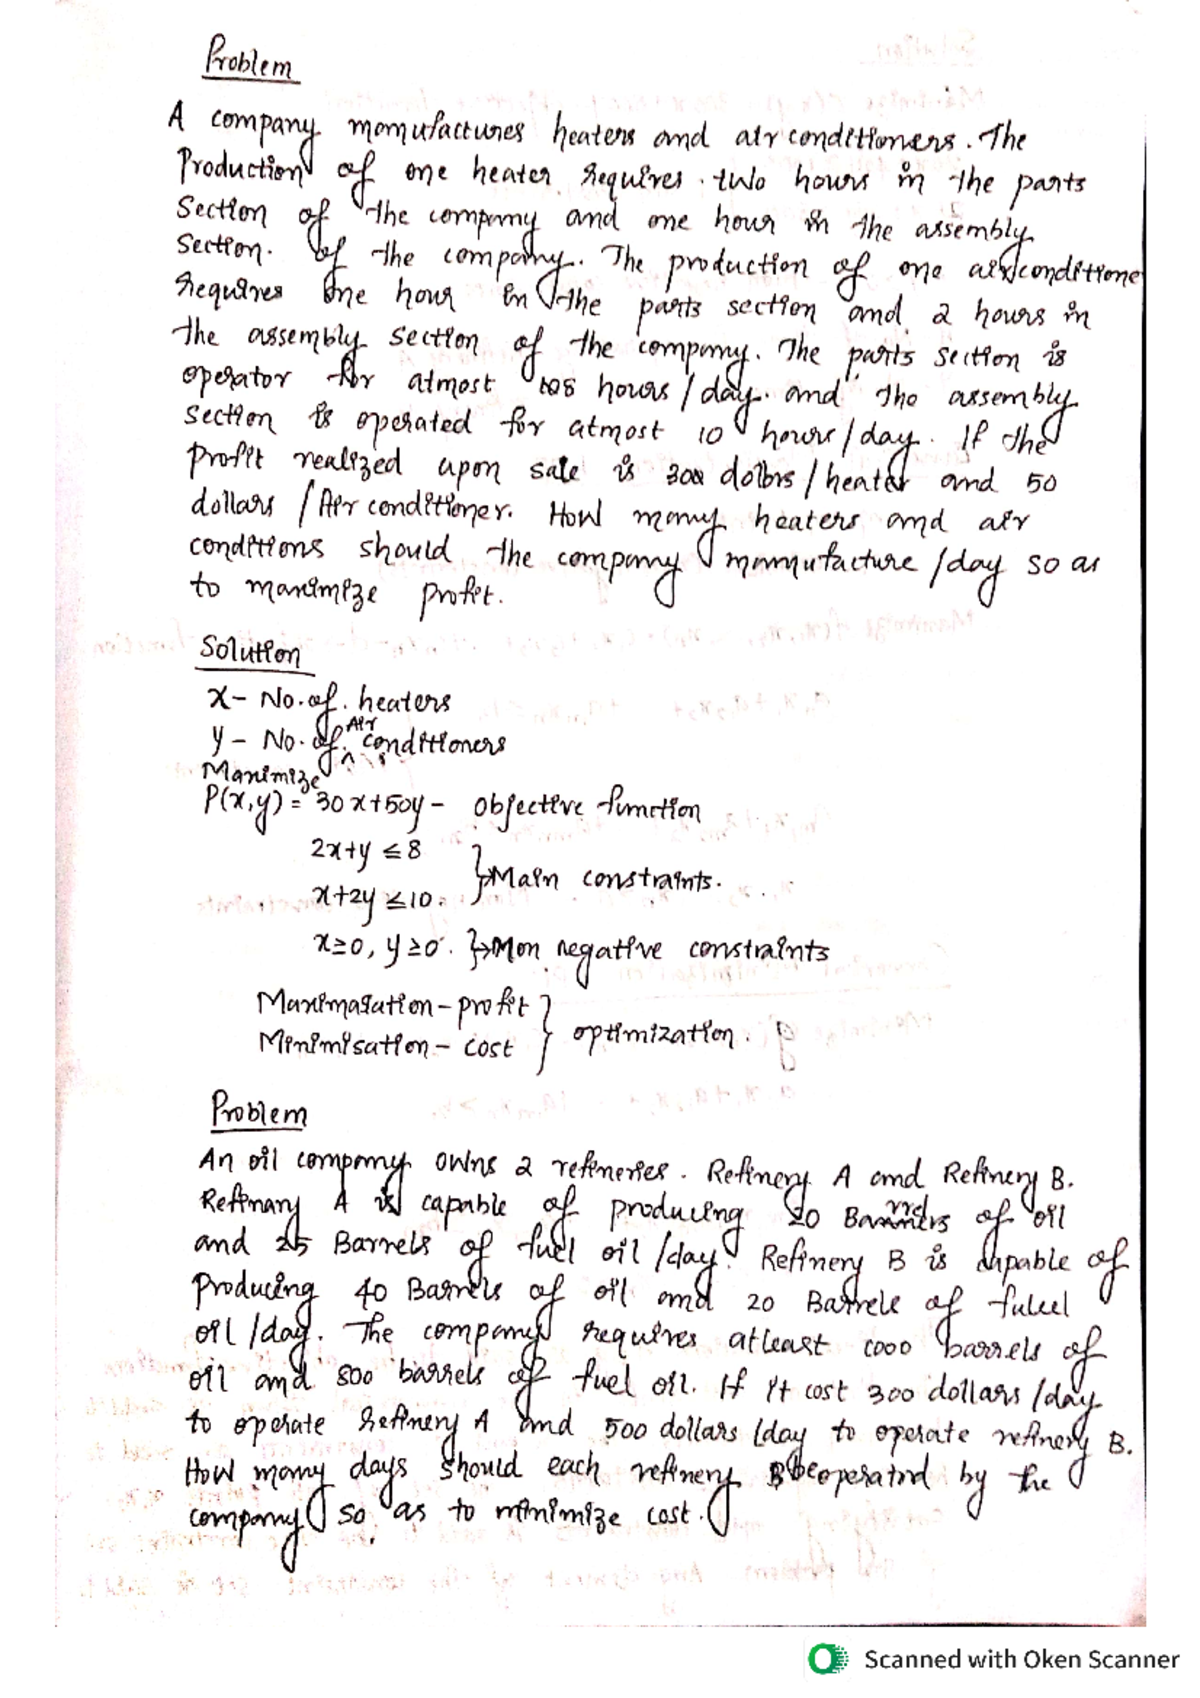 Problem
A company manufactures heaters and air conditioners. The
Production of one heater requires two hours in the parts
Section of the company and one hour in the assembly
Section. of the company. The production of one air conditione
requires one hour in the parts section and 2 hours in
the assembly section of the company. The parts section is
operator for atmost 8 hours / day. and The assembly
section is operated for atmost 10 hours / day. If the
Profit realized upon sale is 30 dollars / heater and 50
dollars / Air conditioner. How many heaters and air
conditions should the company manufacture / day so as
to maximize profit.
Solution
x - No. of. heaters
y - No. of. Air conditioners
Maximize
P(x,y) = 30x+50y - objective function
2x+y ≤ 8
x+2y ≤ 10. } → Main constraints.
x≥0, y≥0. } → Non negative constraints
Maximasation - profit
Minimisation - cost } optimization.
Problem
An oil company owns 2 refineries. Refinery A and Refinery B.
Refinary A is capable of producing 20 Barrels of oil
and 25 Barrels of fuel oil /day. Refinery B is capable of
Producing 40 Barrels of oil and 20 Barrele of fuleel
oil /day. The company requires atleast 1000 barrels of
oil and 800 barrels of fuel oil. If it cost 300 dollars /day
to operate Refinery A and 500 dollars /day to operate refinery B.
How many days should each refinery be operated by the
company so as to minimize cost.
Scanned with Oken Scanner